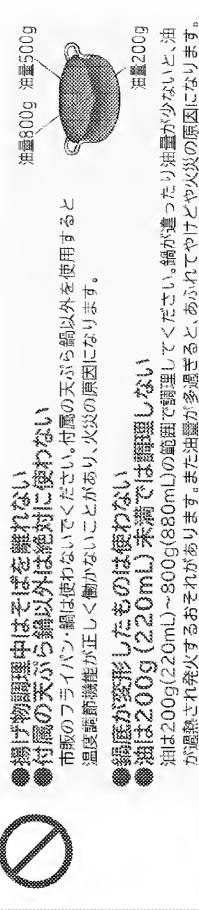 ●揚げ物調理中はそばを離れない
●付属の天ぷら鍋以外は絶対に使わない
市販のフライパン・鍋は使わないでください。付属の天ぷら鍋以外を使用すると
温度調節機能が正しく働かないことがあり、火災の原因になります。
油量800g 油量500g
油量200g
●鍋底が変形したものは使わない
●油は200g(220mL)未満では調理しない
油は200g(220mL)~800g(880mL)の範囲で調理してください。鍋が違ったり油量が少ないと、油
が過熱され発火するおそれがあります。また油量が多過ぎると、あふれてやけどや火災の原因になります。